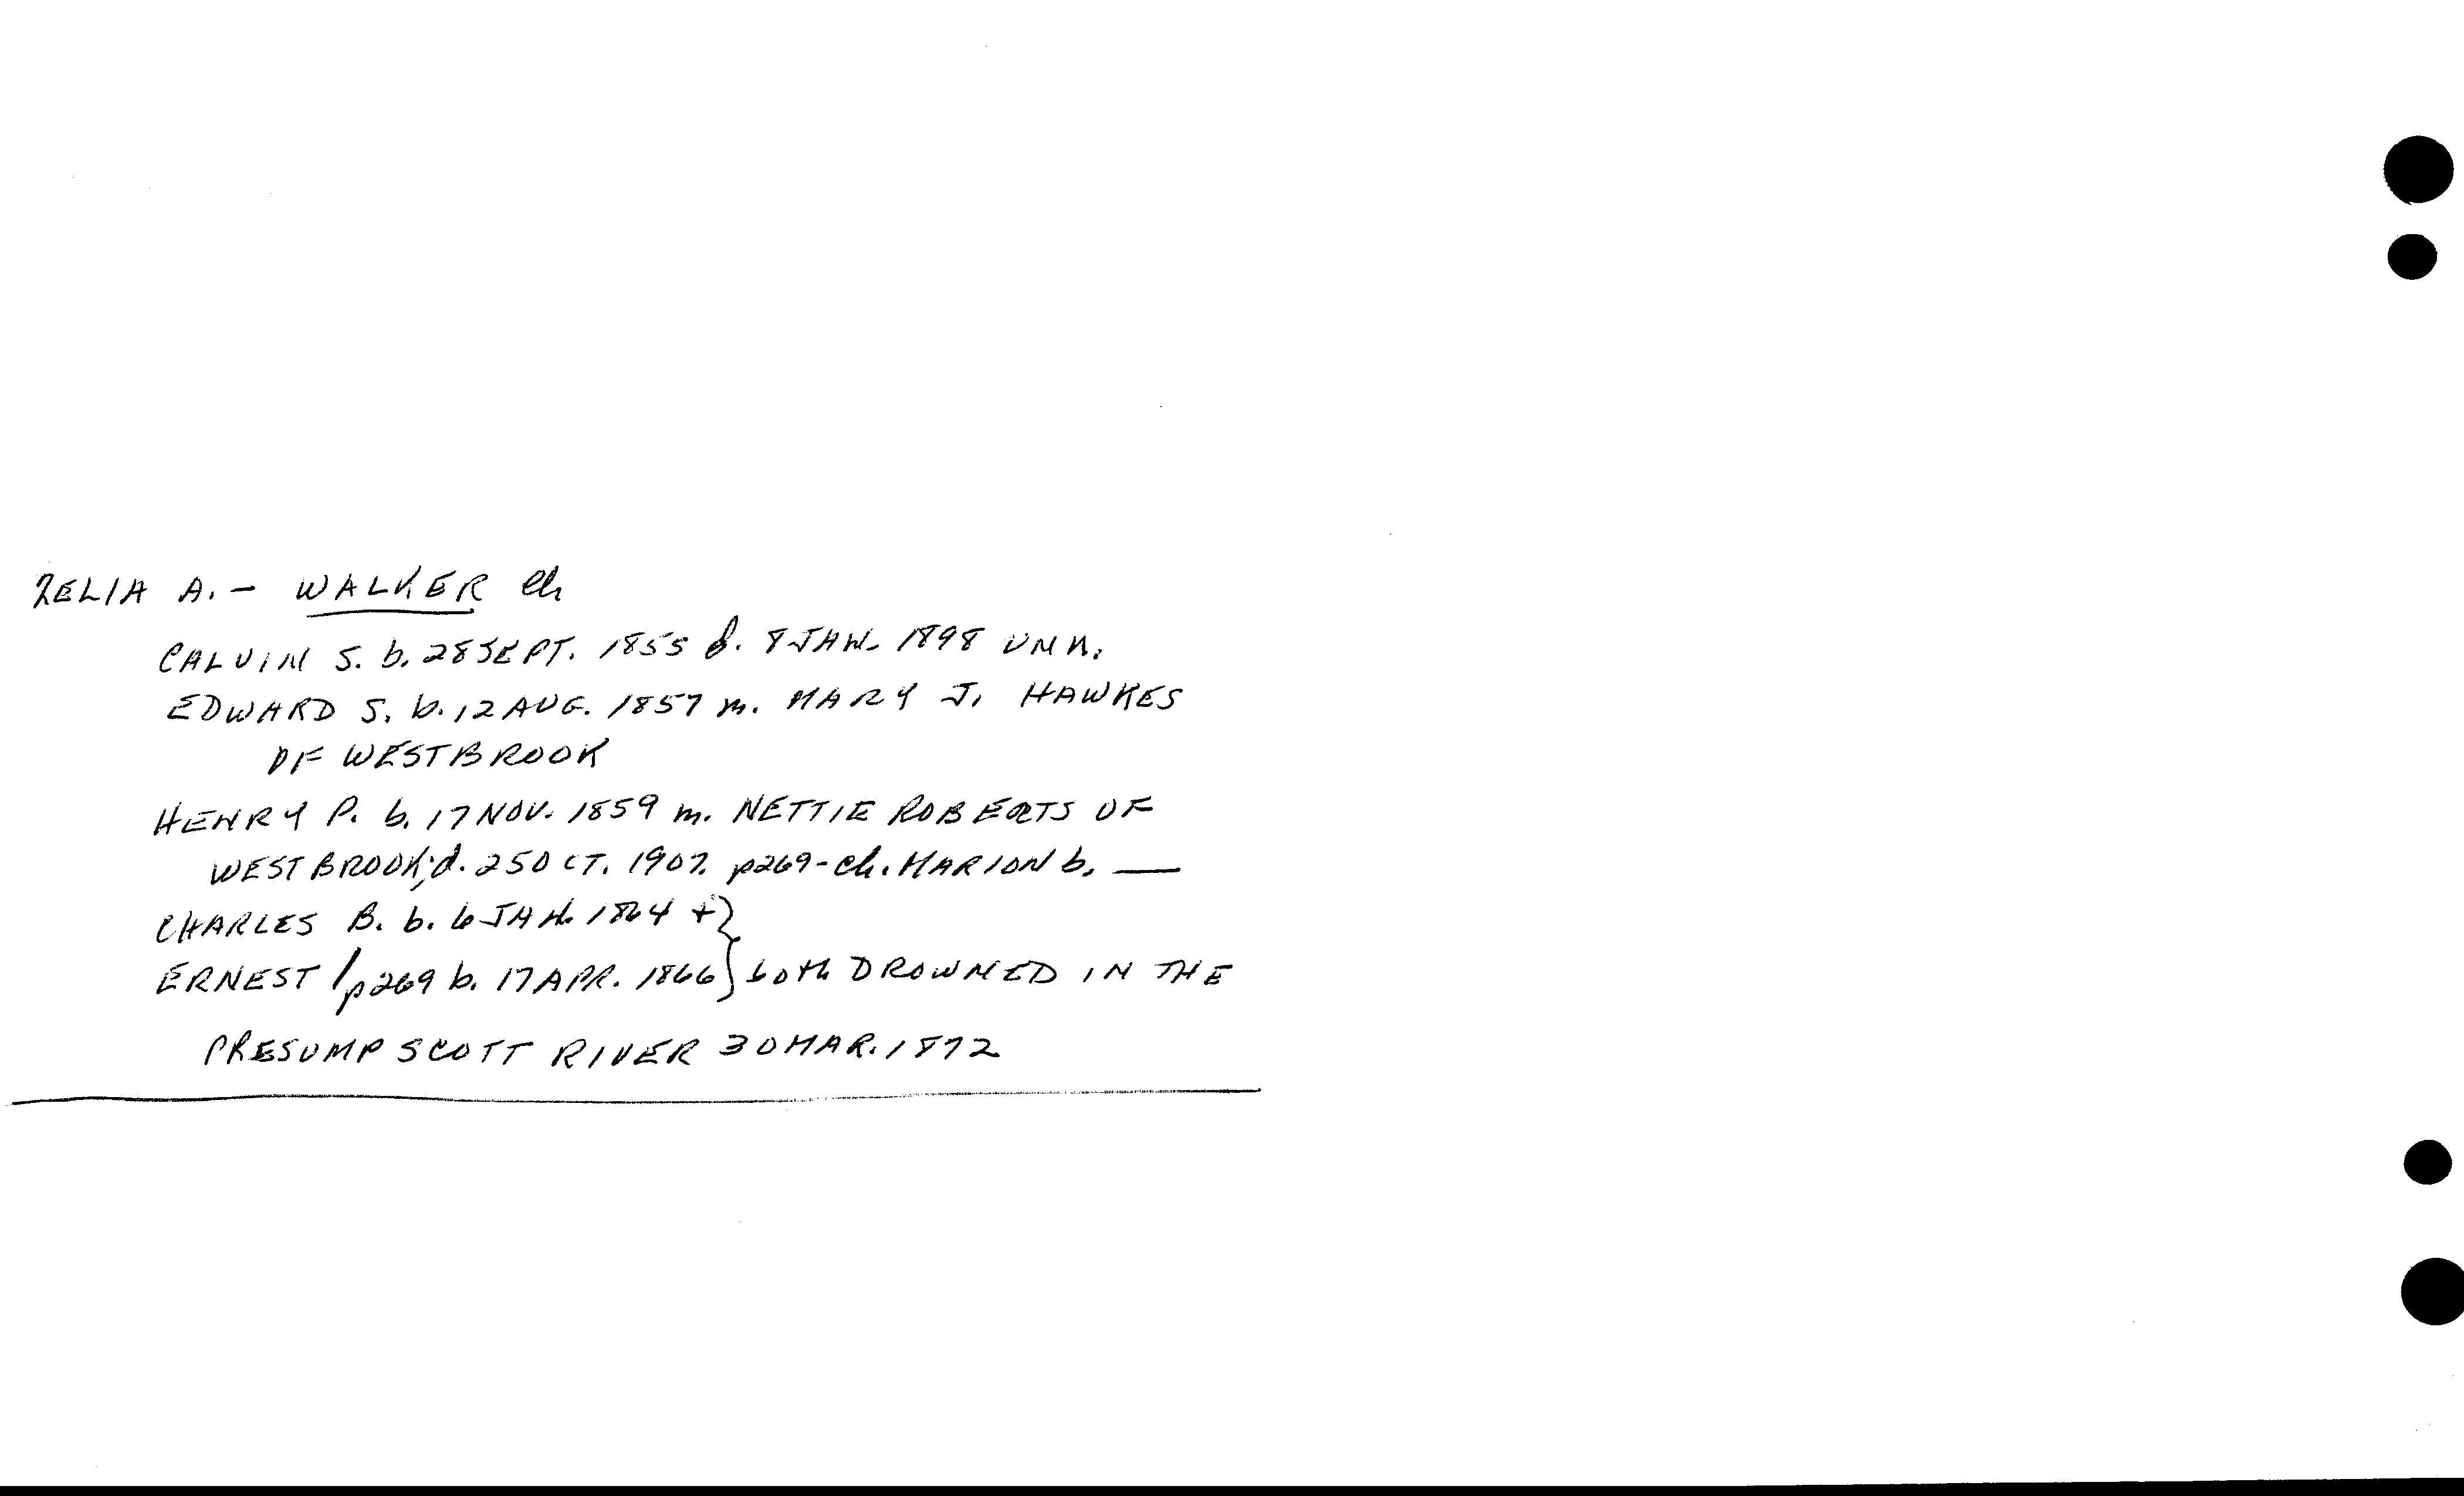 ZELIA A. - WALKER ch
CALVIN S. b. 28 SEPT. 1855 d. 8 JAN. 1898 UNM.
EDWARD S. b. 12 AUG. 1857 m. MARY J. HAWKES
OF WESTBROOK
HENRY P. b. 17 NOV. 1859 m. NETTIE ROBERTS OF
WESTBROOK; d. 25 OCT. 1907. p269 - ch. MARION b. —
CHARLES B. b. 6 JAN. 1864 + }
ERNEST / p269 b. 17 APR. 1866 } both DROWNED IN THE
PRESUMPSCOTT RIVER 30 MAR. 1872